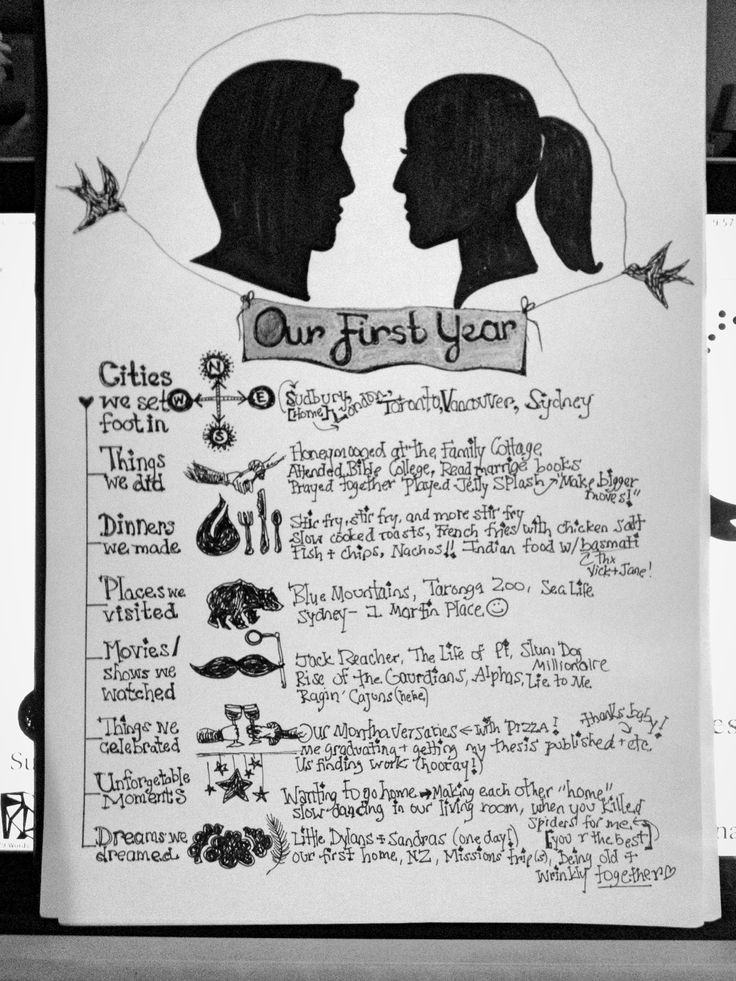 Our First Year
Cities
we set
foot in
N
W E
S
(Sudbury, London, Toronto, Vancouver, Sydney
[Home]
Things
we did
Honeymooned at the Family Cottage
Attended Bible College, Read marrige books
Prayed together Played Jelly Splash "Make bigger
moves!"
Dinners
we made
Stir fry, stir fry, and more stir fry
Slow cooked roasts, French fries with chicken salt
Fish + chips, Nachos!! Indian food w/ basmati
Thx
Vick + Jane!
Places we
visited
Blue Mountains, Taronga Zoo, Sea Life
Sydney - 1 Martin Place
Movies/
shows we
watched
Jack Reacher, The Life of Pi, Slum Dog
Millionaire
Rise of the Gaurdians, Alphas, Lie to Me
Ragin' Cajuns (hehe)
Things we
celebrated
Our Monthaversaries ← with Pizza! thanks baby!
me graduating + getting my thesis published + etc.
Us finding work (hooray!)
Unforgetable
Moments
Wanting to go home → Making each other "home"
slow dancing in our living room, when you killed
spiders for me.
[you r the best]
Dreams we
dreamed
Little Dylans + Sandras (one day!)
our first home, NZ, Missions trip(s), being old +
wrinkly together